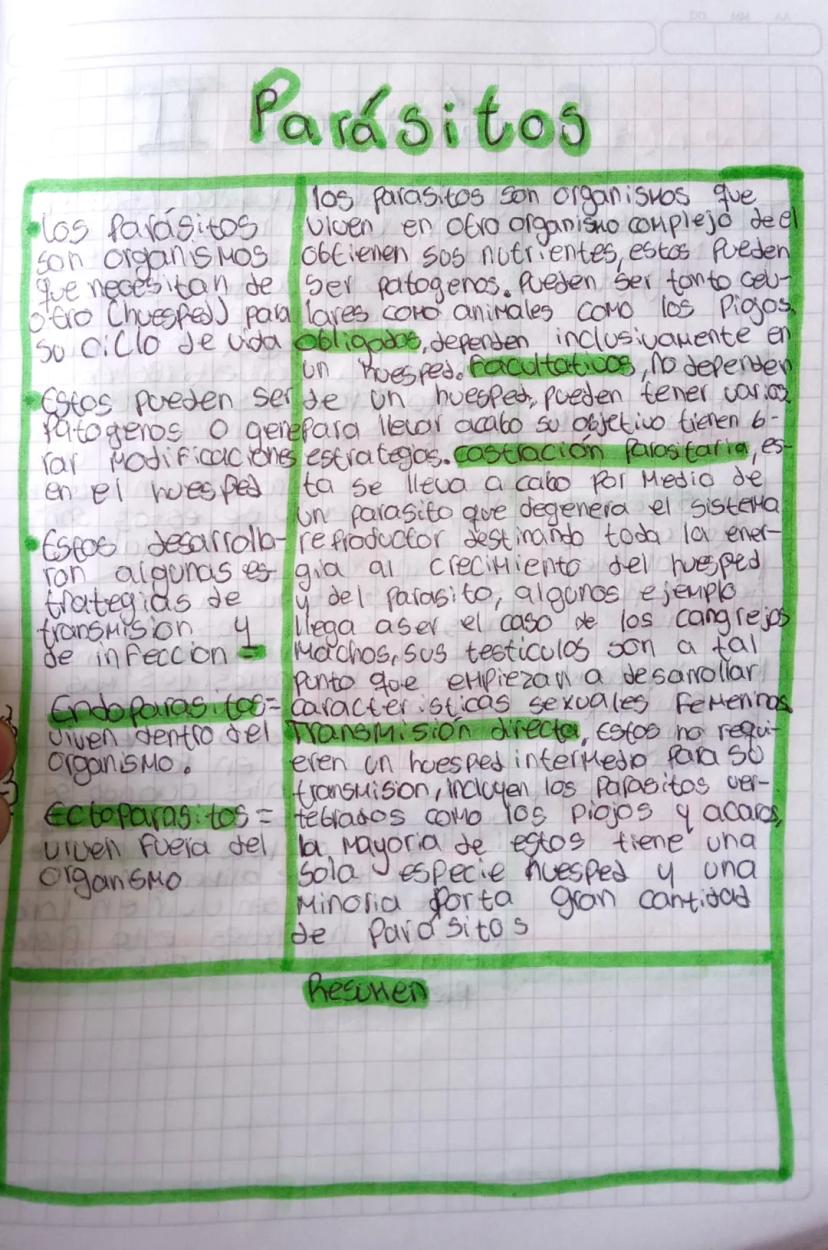 Parásitos
•Los Parásitos
son organismos
que necesitan de
otro (huesped) para
su ciclo de vida
•Estos pueden ser
Patogeros o gene
rar modificaciones
en el huesped
•Estos desarrolla-
ron algunas es-
trategias de
transmision y
de infeccion =
Endoparasitos=
viven dentro del
organismo.
Ectoparasitos =
viven fuera del
organismo
los parasitos son organismos que
viven en otro organismo complejo de el
obtienen sus nutrientes, estos pueden
ser patogenos. Pueden ser tanto celu-
lares como animales como los piojos
obligados, dependen inclusivamente en
un huesped. Facultativos, no dependen
de un huesped, pueden tener varios
para llevar acabo su objetivo tienen 6-
estrategas. castración Parasitaria, es-
ta se lleva a cabo por medio de
un parasito que degenera el sistema
reproductor destinando toda la ener-
gia al crecimiento del huesped
y del parasito, algunos ejemplo
llega a ser el caso de los cangrejos
machos, sus testiculos son a tal
punto que empiezan a desarrollar
caracteristicas sexuales femeninas
Transmisión directa, Estos no requi-
eren un huesped intermedio para su
transmision, incluyen los parasitos ver-
tebrados como los piojos y acaros,
la mayoria de estos tiene una
sola especie huesped y una
minoria porta gran cantidad
de parásitos
Resumen